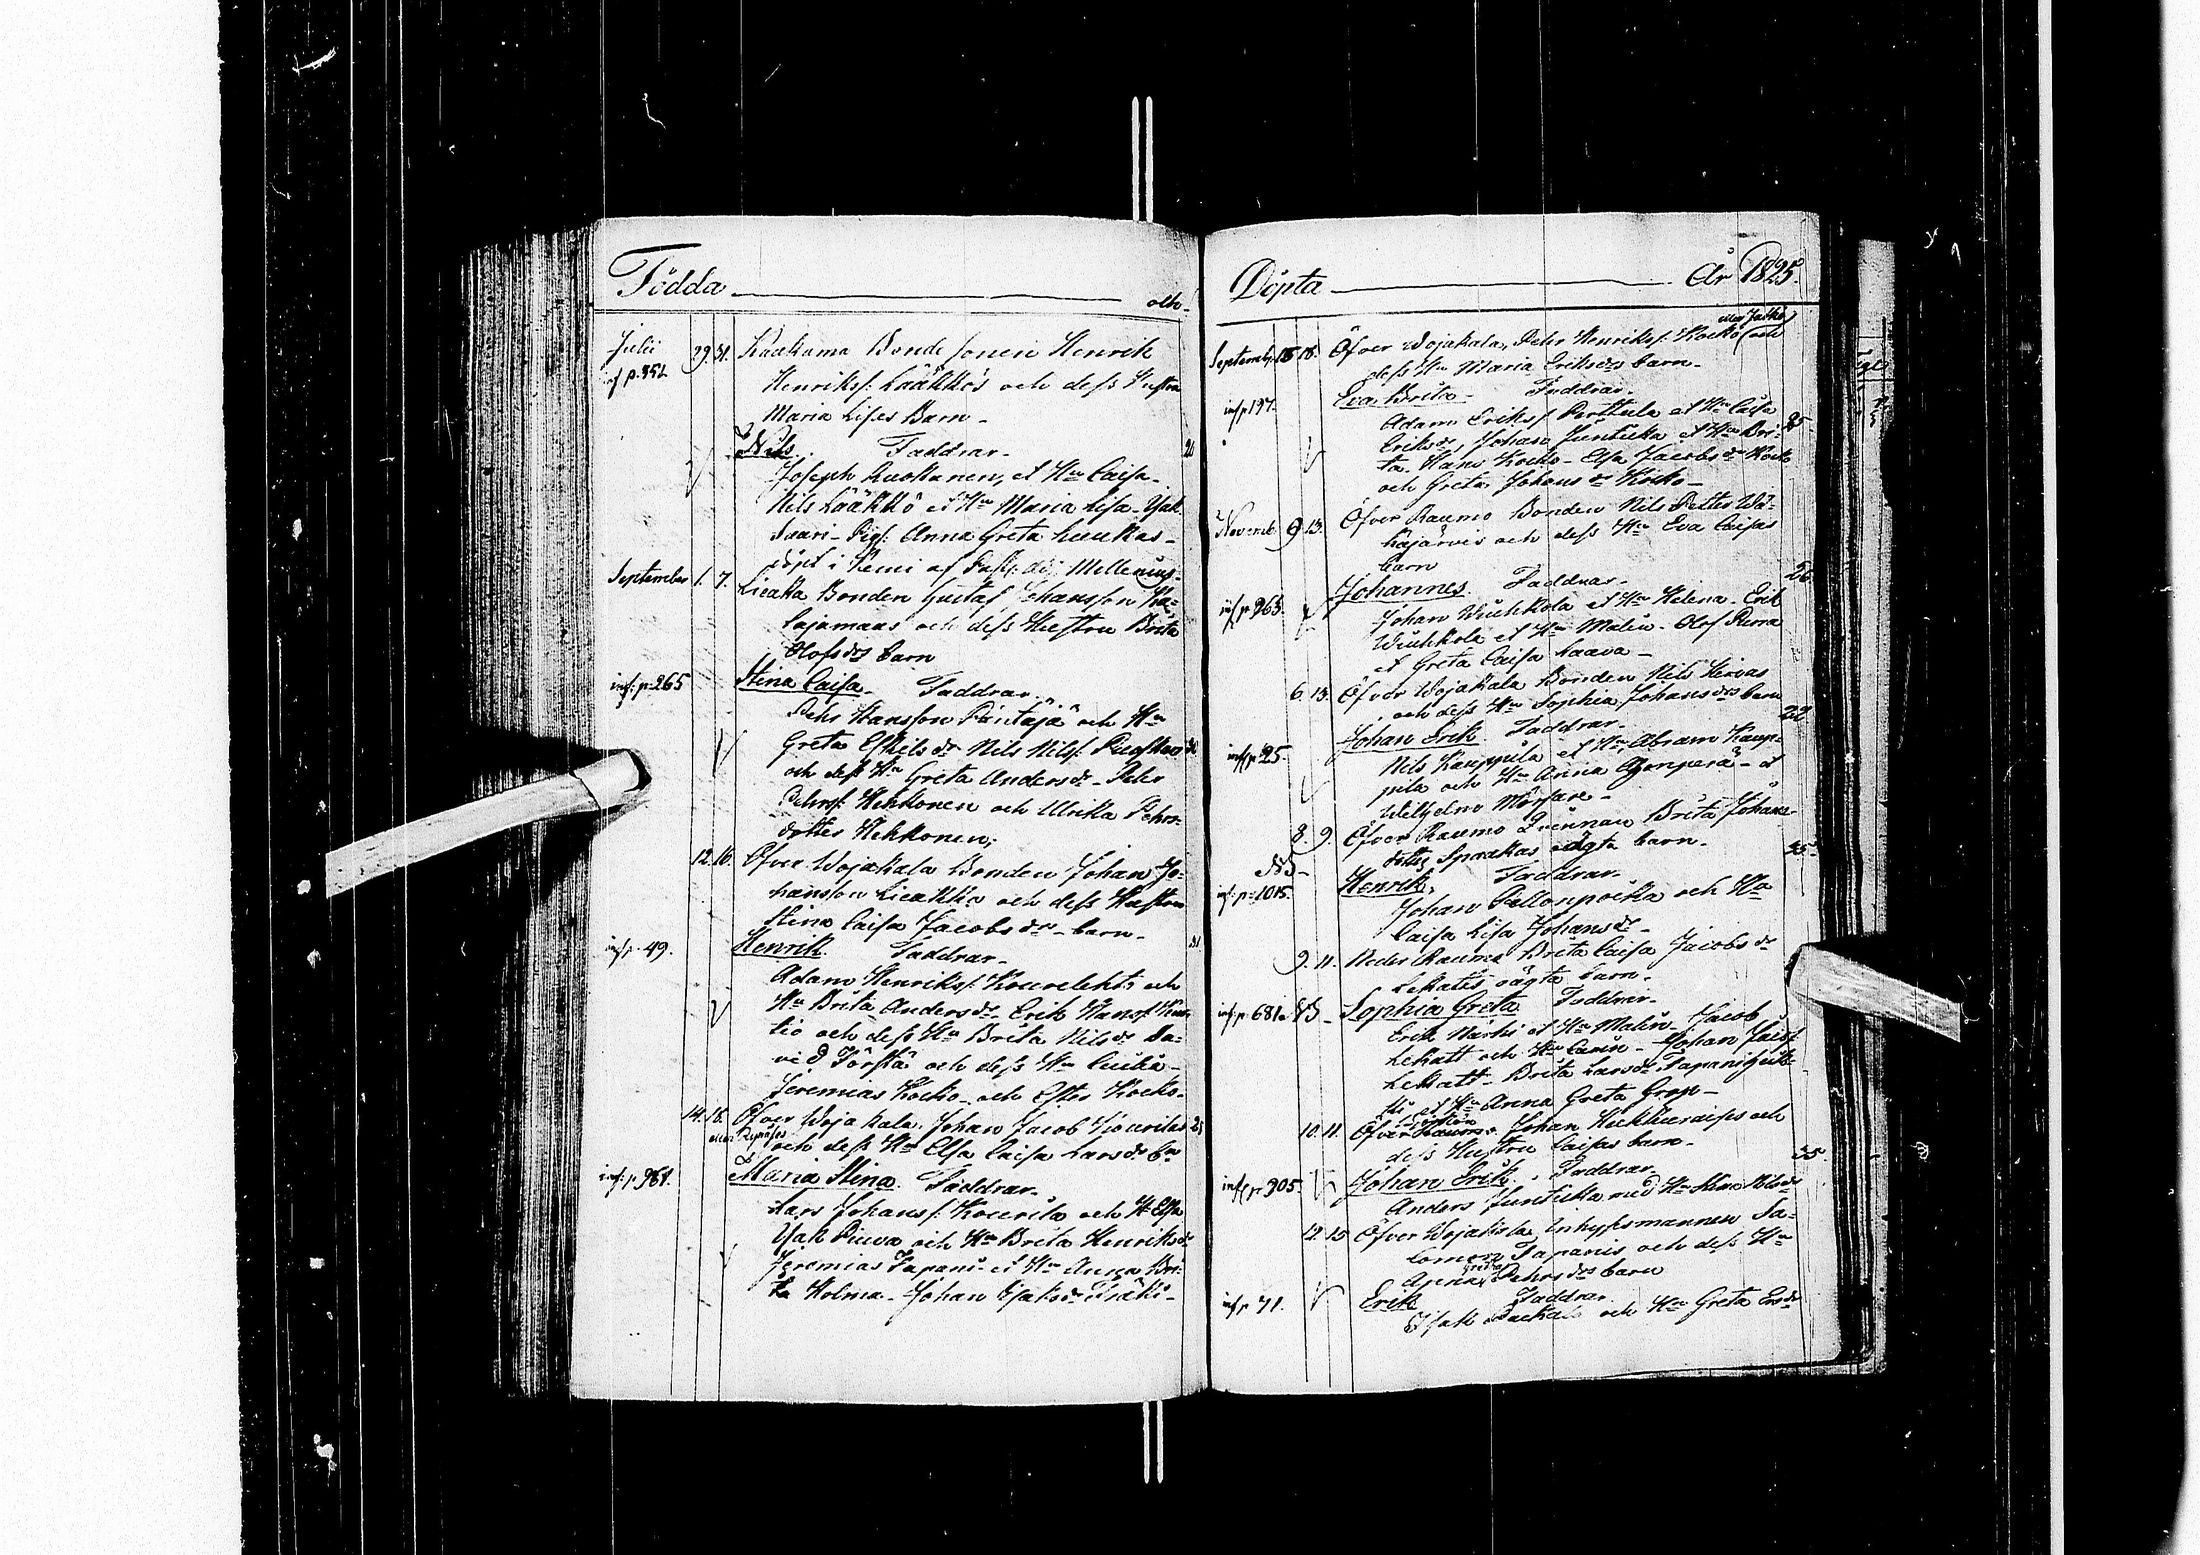 Födda
och
Julii 29. 31. Kaukama Bonde sonen Henrik
inf p. 352 Henrikss: Lääkkös och dess Hustru
Maria Lises Barn -
Nils. Faddrar - 20
Joseph Ruokanen, et Hu Caisa -
Nils Lääkkö et Hu Maria Lisa -
Pig: Anna Greta Luukas -
döpt i Kemi af
September 1. 7. Liedakka Bonden Gustaf Johansson
och dess Hustru Brita
Olofsdrs barn
inf: p. 265 Stina Caisa - Faddrar -
Pehr Hansson Päntäjä och Hu
Greta Eskilsdr Nils Nilss:
och dess Hu Greta Andersdr - Pehr
Pehrss: Hekkonen och Ulrika Pehrs-
dotter Hekkonen;
12. 16. Öfver Wojakala Bonden Johan Jo-
hansson Liedakka och dess Hustru
Stina Caisa Jacobsdrs - barn -
inf p. 49. Henrik. Faddrar - 31
Adam Henrikss: Kourelehti och
Hu Brita Andersdr - Erik Hanss:
tio och dess Hu Brita Nilsdr Da-
vid Förstä och dess Hu
Jeremias Kocko - och Ester Kocko -
14. 18. Öfver Wojakala. Johan Jacob Kourilas 25
och dess Hu Elsa Caisa Larsdrs bn
inf: p. 961. Maria Stina. Faddrar -
Lars Johanss: Kourila och H Elsa
Isak och Hu Brita Henriksdr
Jeremias Tapani - et Hu Anna Bri-
ta Holma - Johan
Döpta
År 1825.
September 15 18. Öfver Wojakala, Pehr Henrikss: Kocko och
dess Hu Maria Eriksdrs barn -
inf p 197. Eva Brita - Faddrar -
Adam Erikss: Parttula et Hu Caisa 25
Eriksdr, Johan Juntikka et Hu Bri-
ta - Hans Kocko - Elsa Jacobsdr Kocko
och Greta Johansdr Kocko -
Novemb. 9. 13. Öfver Raumo Bonden Nils Petter Wä-
häjärvis och dess Hu Eva Caisas
barn
inf: p. 263. Johannes. Faddrar - 26
Johan Wiuhkola et Hu Helena. Erik
Wiuhkola et Hu Malin - Olof
et Greta Caisa Kaava -
6. 13. Öfver Wojakala Bonden Nils Hirvas
och dess Hu Sophia Johansdrs barn
inf p 25. Johan Erik. Faddrar - 22
Nils Kauppila et Hu, Abram Kaup-
pila och Hu Anna - et
Wilhelm
8. 9. Öfver Raumo Qvinnan Brita Johans-
dotter oägta barn -
NB -
inf: p. 1015. Henrik. Faddrar - 35
Johan Pellonpoika och Hu
Caisa Lisa Johansdr -
9. 11. Neder Raumo Brita Caisa Jacobsdr
Lekatis oägta barn -
inf: p. 681 NB - Sophia Greta. Faddrar -
Erik Närhi et Hu Malin - Jacob
Lekatt och Hu Carin - Johan
Lekatt - Brita Larsdr
et Hu Anna Greta Grop -
10. 11. Öfver Johan och
dess Hustru Caisas barn - 35
inf p. 305. Johan Erik. Faddrar -
Anders Juntikka med Hu Stina Nilsdr
12. 15 Öfver Wojakala, Inhysesmannen Sa-
lomon Tapanis och dess Hu
Anna Greta Pehrsdrs barn
inf p 71. Erik Faddrar
Isak och Hu Greta Ersdr